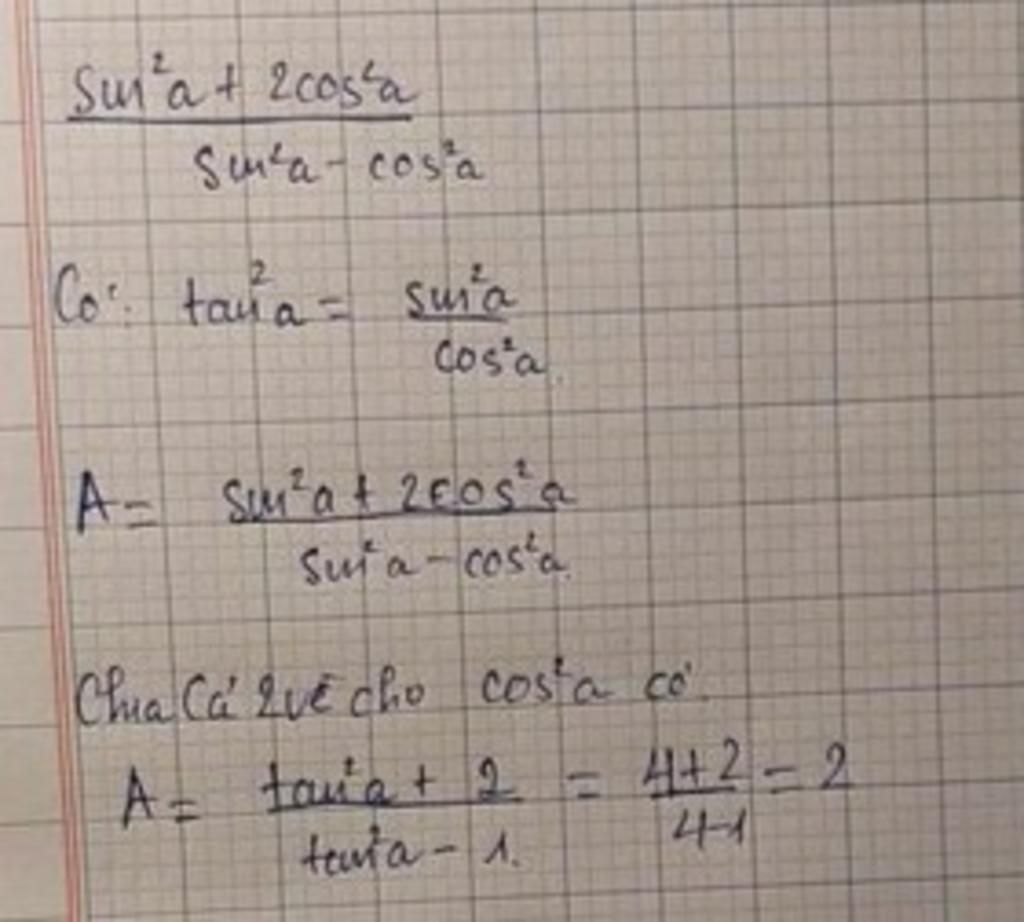 sin²a + 2cos²a
sin²a - cos²a
Có: tan²a = sin²a
cos²a.
A = sin²a + 2cos²a
sin²a - cos²a.
Chia Cả 2 vế cho cos²a có.
A = tan²a + 2 = 4+2 = 2
tan²a - 1. 4-1